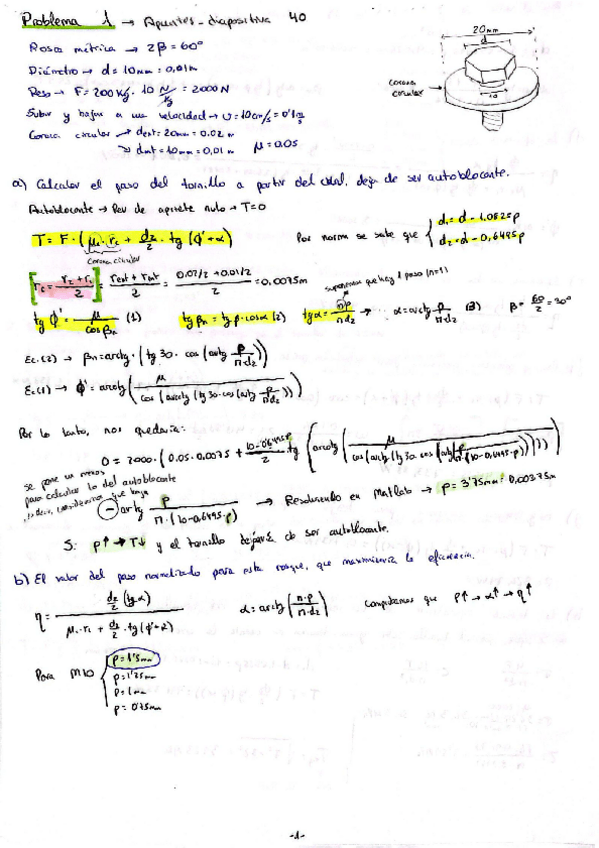 Problema 1 → Apuntes - diapositiva 40
Rosca métrica → 2β = 60°
Diámetro → d = 10mm = 0,01m
Peso → F = 200 Kg · 10 N/Kg = 2000 N
Subir y bajar a una velocidad → v = 10cm/s = 0'1 m/s
Corona circular → dext = 20mm = 0.02 m
→ dint = 10mm = 0,01 m μ = 0.05
20mm
d
corona circular
10
a) Calcular el paso del tornillo a partir del cual, deja de ser autoblocante.
Autoblocante → Par de apriete nulo → T=0
T = F · (μc · rc + d2/2 · tg (ϕ' + α)
corona circular
Por norma se sabe que { d1 = d - 1,0825p
d2 = d - 0,6495p
[rc = (r2 + r1)/2] = (rext + rint)/2 = (0.02/2 + 0.01/2)/2 = 0.0075m
suponemos que hay 1 paso (n=1)
tg ϕ' = μ/cos βn (1) tg βn = tg β · cos α (2) tg α = np/π d2 → α = arctg p/π·d2 (3) β = 60/2 = 30°
Ec.(2) → βn = arctg · (tg 30 · cos (arctg p/π·d2))
Ec(1) → ϕ' = arctg (μ/cos (arctg (tg 30 · cos (arctg p/π d2))))
Por lo tanto, nos quedaría:
0 = 2000 · (0.05 · 0.0075 + (10 - 0.6495p)/2 · tg (arctg (μ/cos (arctg (tg 30 · cos (arctg p/π·(10 - 0,6495·p))))))
se pone un menos para calcular lo del autoblocante
que baja
- arctg p/π·(10 - 0,6495p) → Resolviendo en Matlab → p = 3'75mm = 0,00375m
Si p↑ → T↓ y el tornillo dejará de ser autoblocante.
b) El valor del paso normalizado para esta rosca, que maximizaría la eficiencia.
η = (d2/2 (tg α))/(μc · rc + d2/2 · tg (ϕ' + α)) α = arctg (n·p/π·d2) Comprobamos que p↑ → α↑ → η↑
Para M10 { p = 1'5mm
p = 1'25mm
p = 1mm
p = 0'75mm
-1-